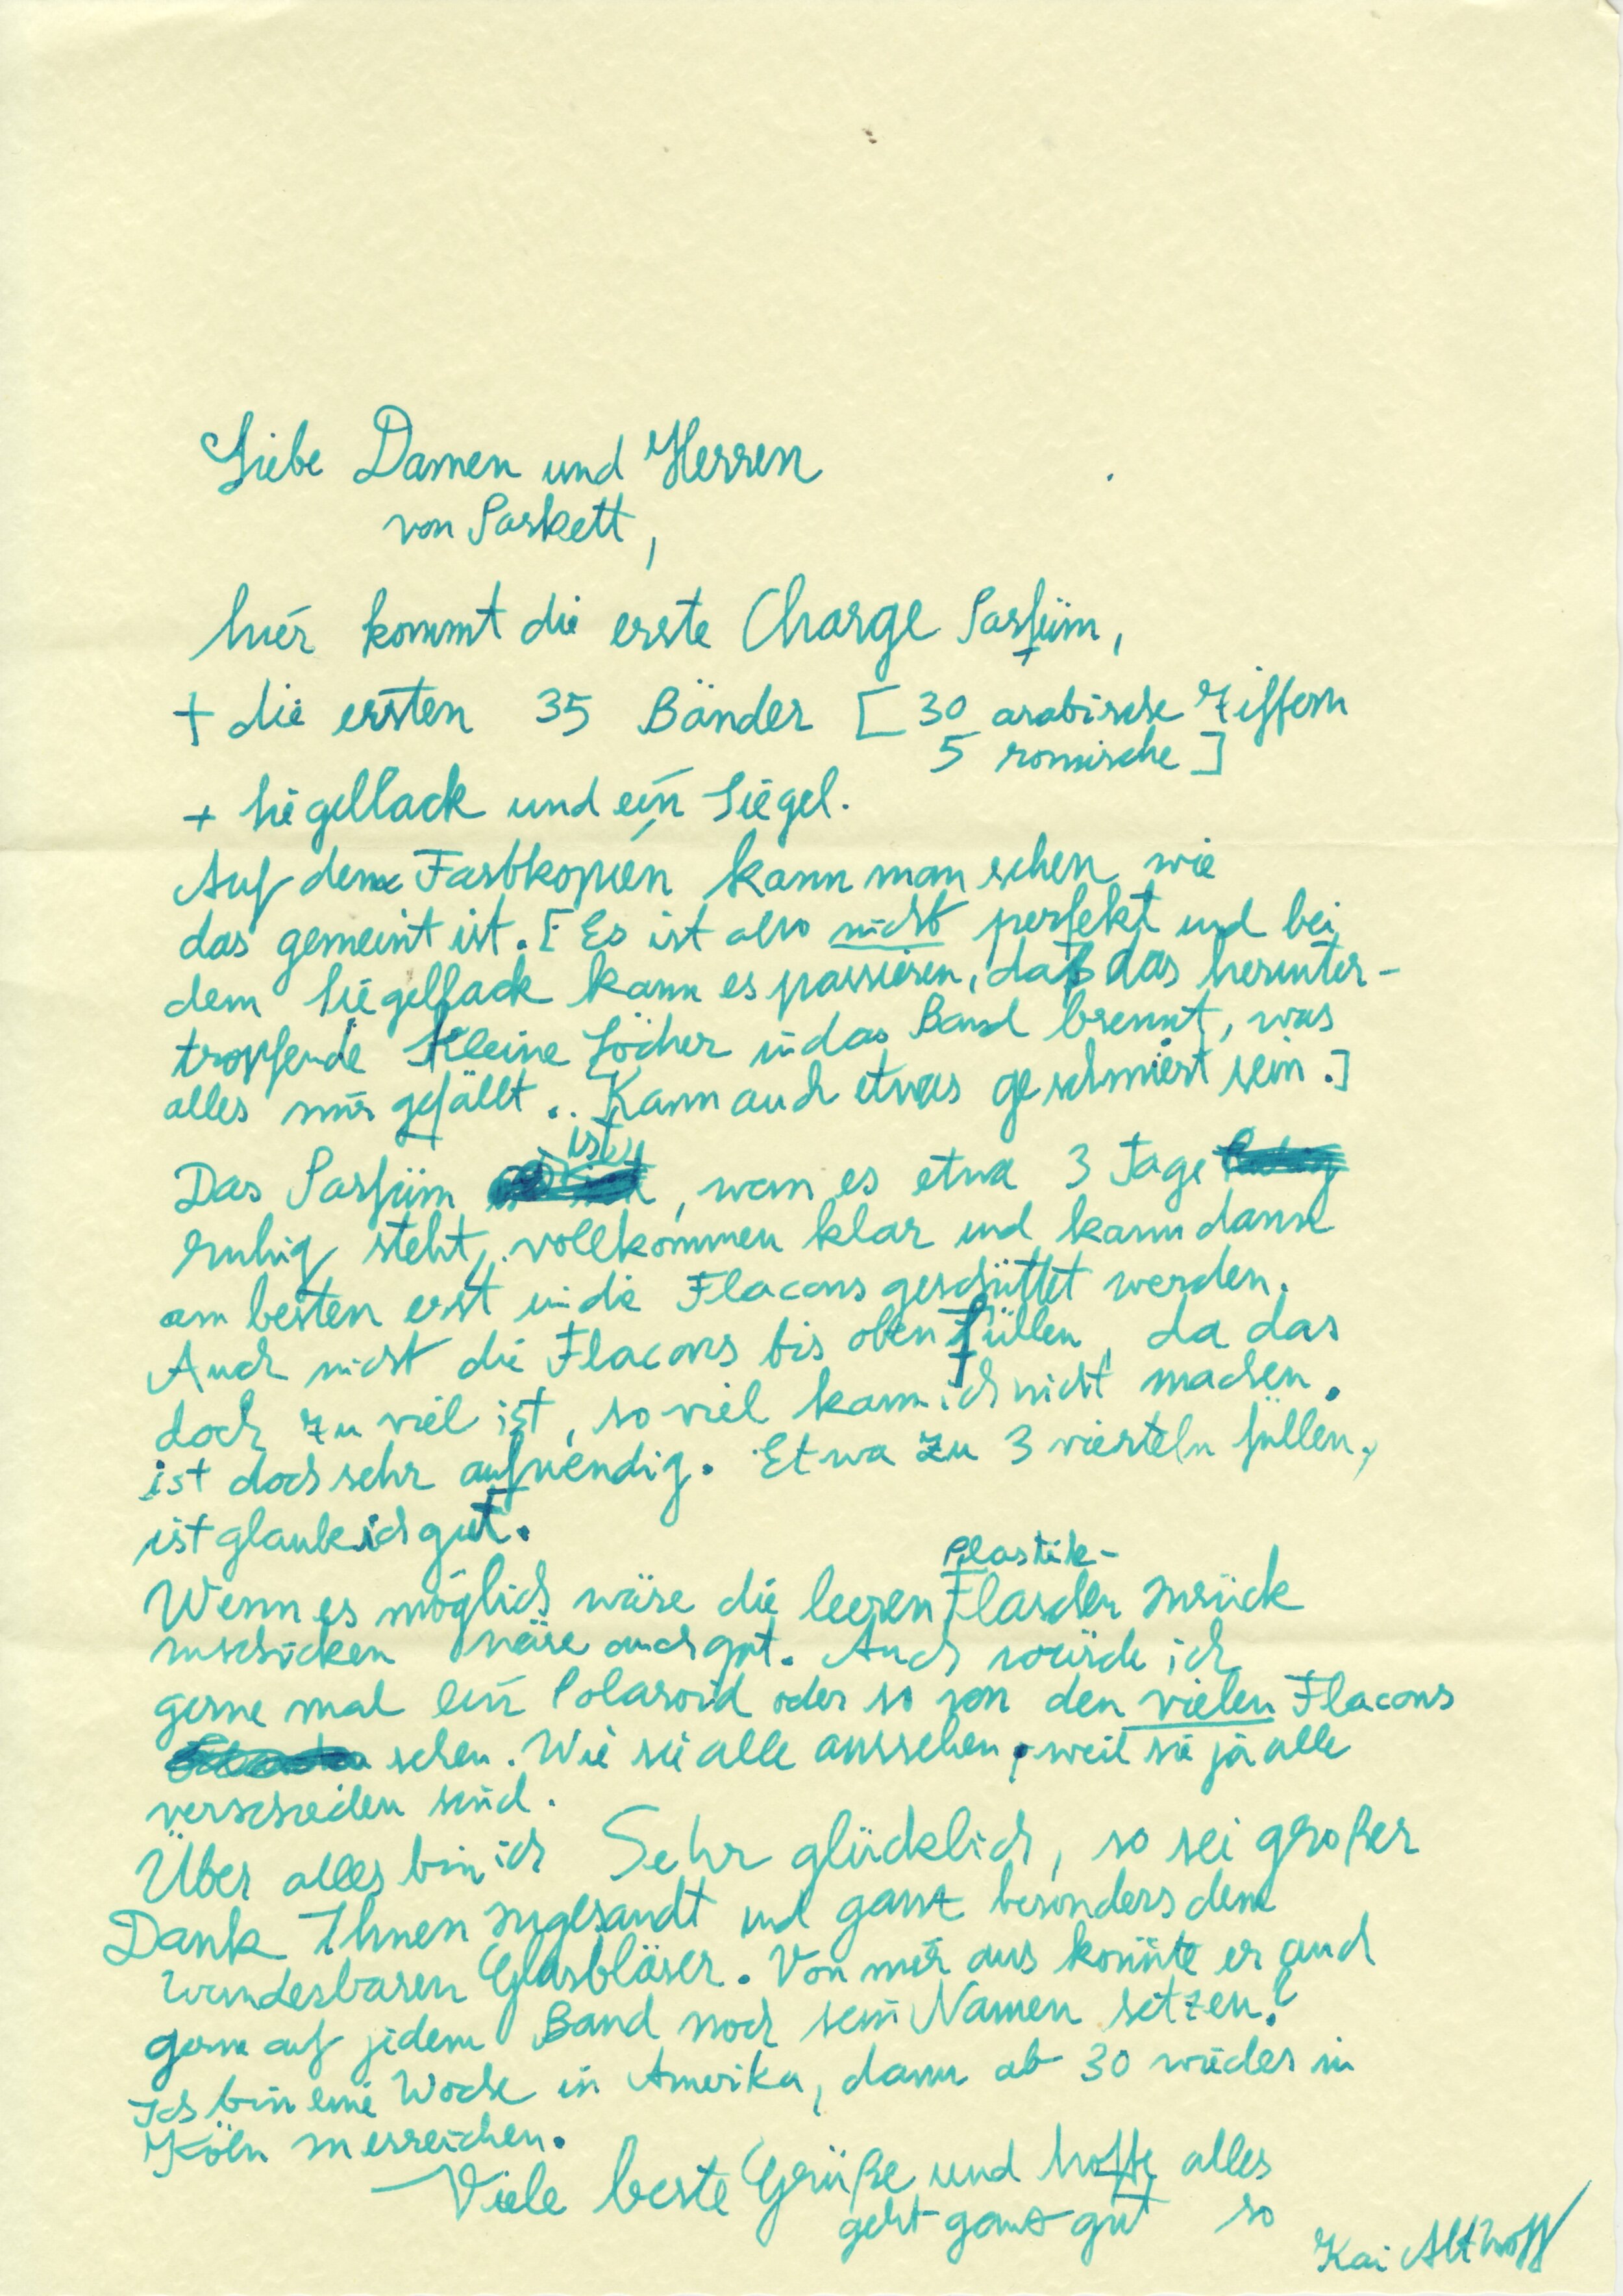 Liebe Damen und Herren
von Parkett,
hier kommt die erste Charge Parfüm,
+ die ersten 35 Bänder [30 arabische Ziffern
5 römische]
+ Siegellack und ein Siegel.
Auf den Farbkopien kann man sehen wie
das gemeint ist. [Es ist also nicht perfekt und bei
dem Siegellack kann es passieren, daß das herunter-
tropfende kleine Löcher in das Band brennt, was
alles mir gefällt.. Kann auch etwas geschmiert sein.]
Das Parfüm ist, wenn es etwa 3 Tage
ruhig steht, vollkommen klar und kann dann
am besten erst in die Flacons geschüttet werden.
Auch nicht die Flacons bis oben füllen, da das
doch zu viel ist, so viel kann ich nicht machen.
ist doch sehr aufwendig. Etwa zu 3 vierteln füllen,
ist glaube ich gut.
Wenn es möglich wäre die leeren Plastik-Flaschen zurück
zuschicken wäre auch gut. Auch würde ich
gerne mal ein Polaroid oder so von den vielen Flacons
sehen. Wie sie alle aussehen, weil sie ja alle
verschieden sind.
Über alles bin ich Sehr glücklich, so sei großer
Dank Ihnen zugesandt und ganz besonders dem
wunderbaren Glasbläser. Von mir aus könnte er auch
gern auf jedem Band noch sein Namen setzen?
Ich bin eine Woche in Amerika, dann ab 30 wieder in
Köln zu erreichen.
Viele beste Grüße und hoffe alles
geht ganz gut so
Kai Althoff